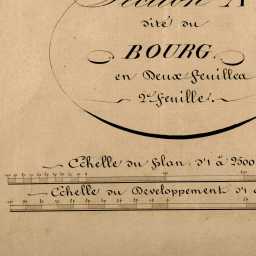 Section A
dite du
BOURG.
en Deux Feuilles
2e Feuille.
Echelle du Plan d'1 à 2500
Echelle du Developpement d'1 à